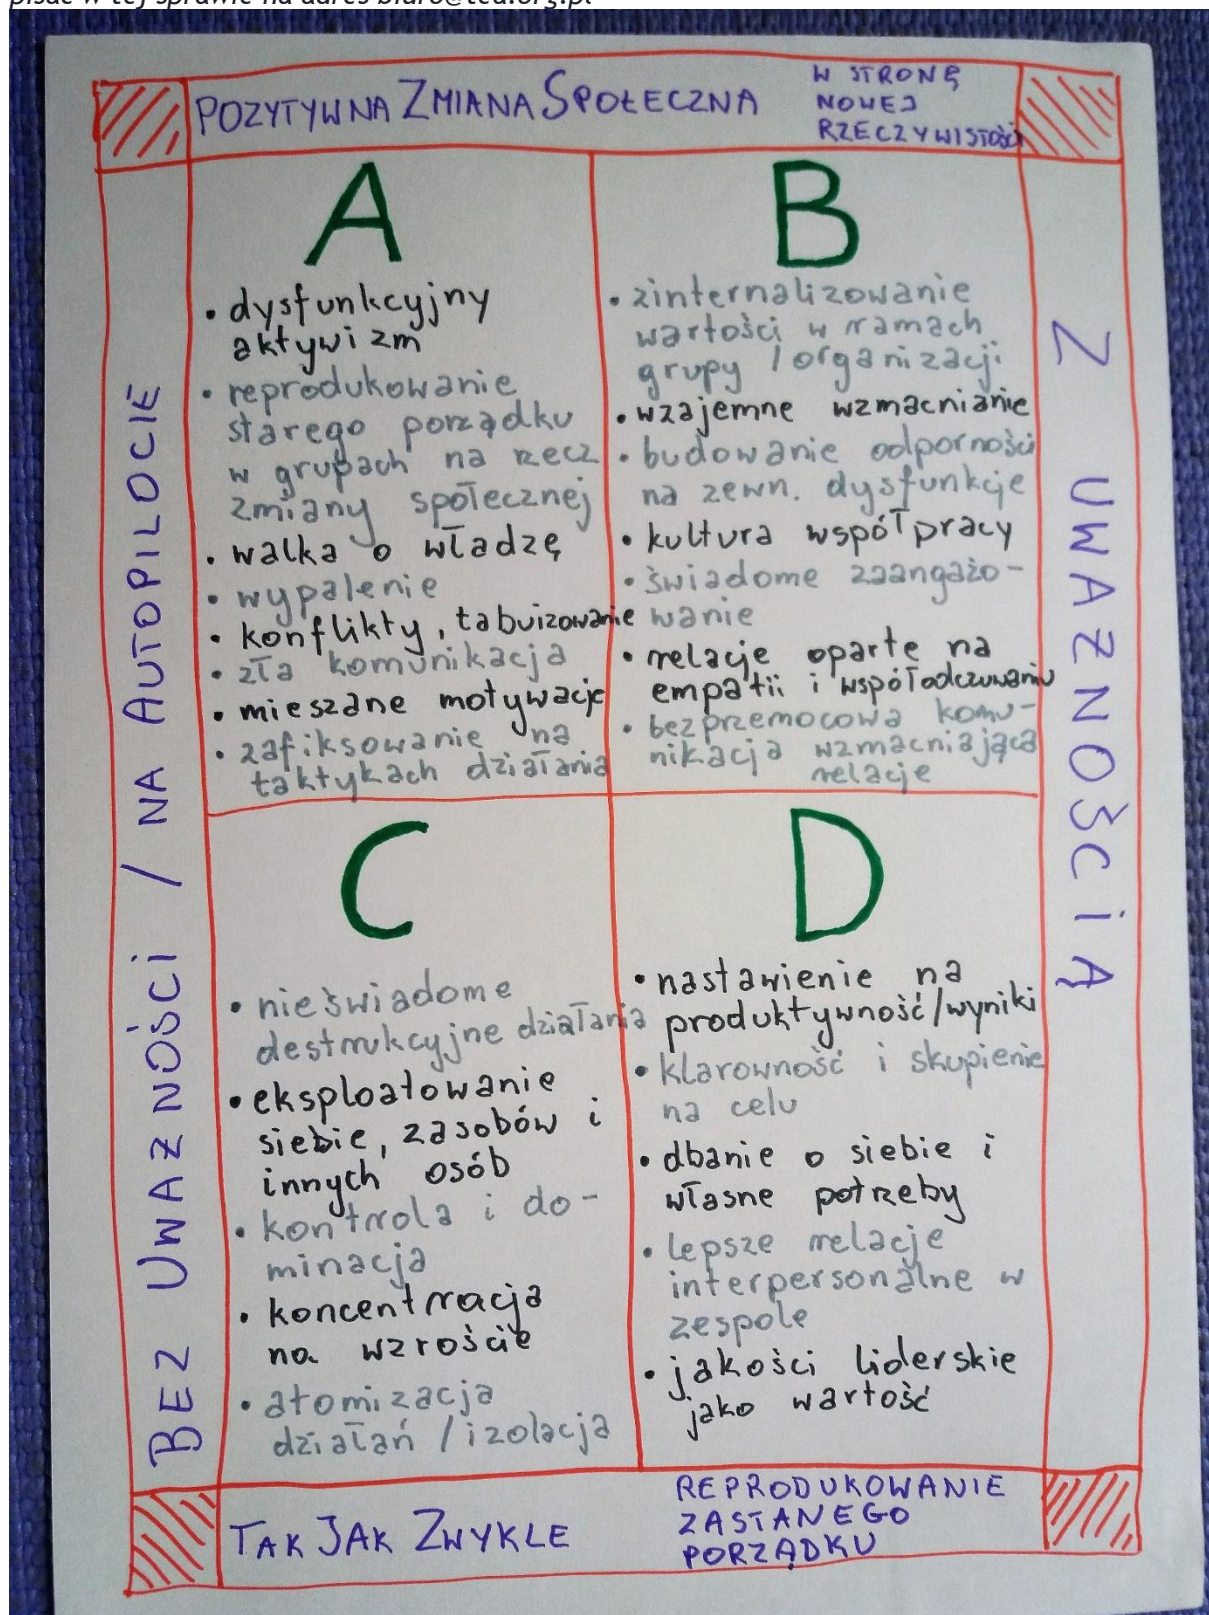 pisać w tej sprawie na adres biuro@lea.org.pl
POZYTYWNA ZMIANA SPOŁECZNA
W STRONĘ
NOWEJ
RZECZYWISTOŚCI
BEZ UWAŻNOŚCI / NA AUTOPILOCIE
A
• dysfunkcyjny
aktywizm
• reprodukowanie
starego porządku
w grupach na rzecz
zmiany społecznej
• walka o władzę
• wypalenie
• konflikty, tabuizowanie
• zła komunikacja
• mieszane motywacje
• zafiksowanie na
taktykach działania
B
• zinternalizowanie
wartości w ramach
grupy / organizacji
• wzajemne wzmacnianie
• budowanie odporności
na zewn. dysfunkcje
• kultura współpracy
• świadome zaangażo-
wanie
• relacje oparte na
empatii i współodczuwaniu
• bezprzemocowa komu-
nikacja wzmacniająca
relacje
Z UWAŻNOŚCIĄ
C
• nieświadome
destrukcyjne działania
• eksploatowanie
siebie, zasobów i
innych osób
• kontrola i do-
minacja
• koncentracja
na wzroście
• atomizacja
działań / izolacja
D
• nastawienie na
produktywność/wyniki
• klarowność i skupienie
na celu
• dbanie o siebie i
własne potrzeby
• lepsze relacje
interpersonalne w
zespole
• jakości liderskie
jako wartość
TAK JAK ZWYKLE
REPRODUKOWANIE
ZASTANEGO
PORZĄDKU